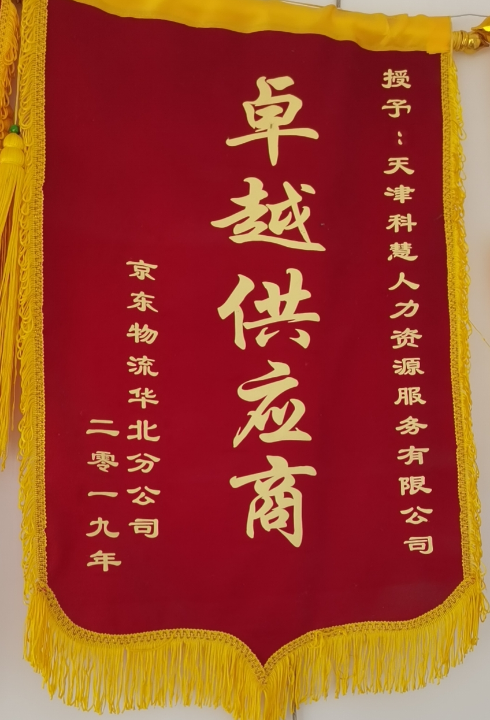 授予：天津科慧人力资源服务有限公司
卓越供应商
京东物流华北分公司
二零一九年